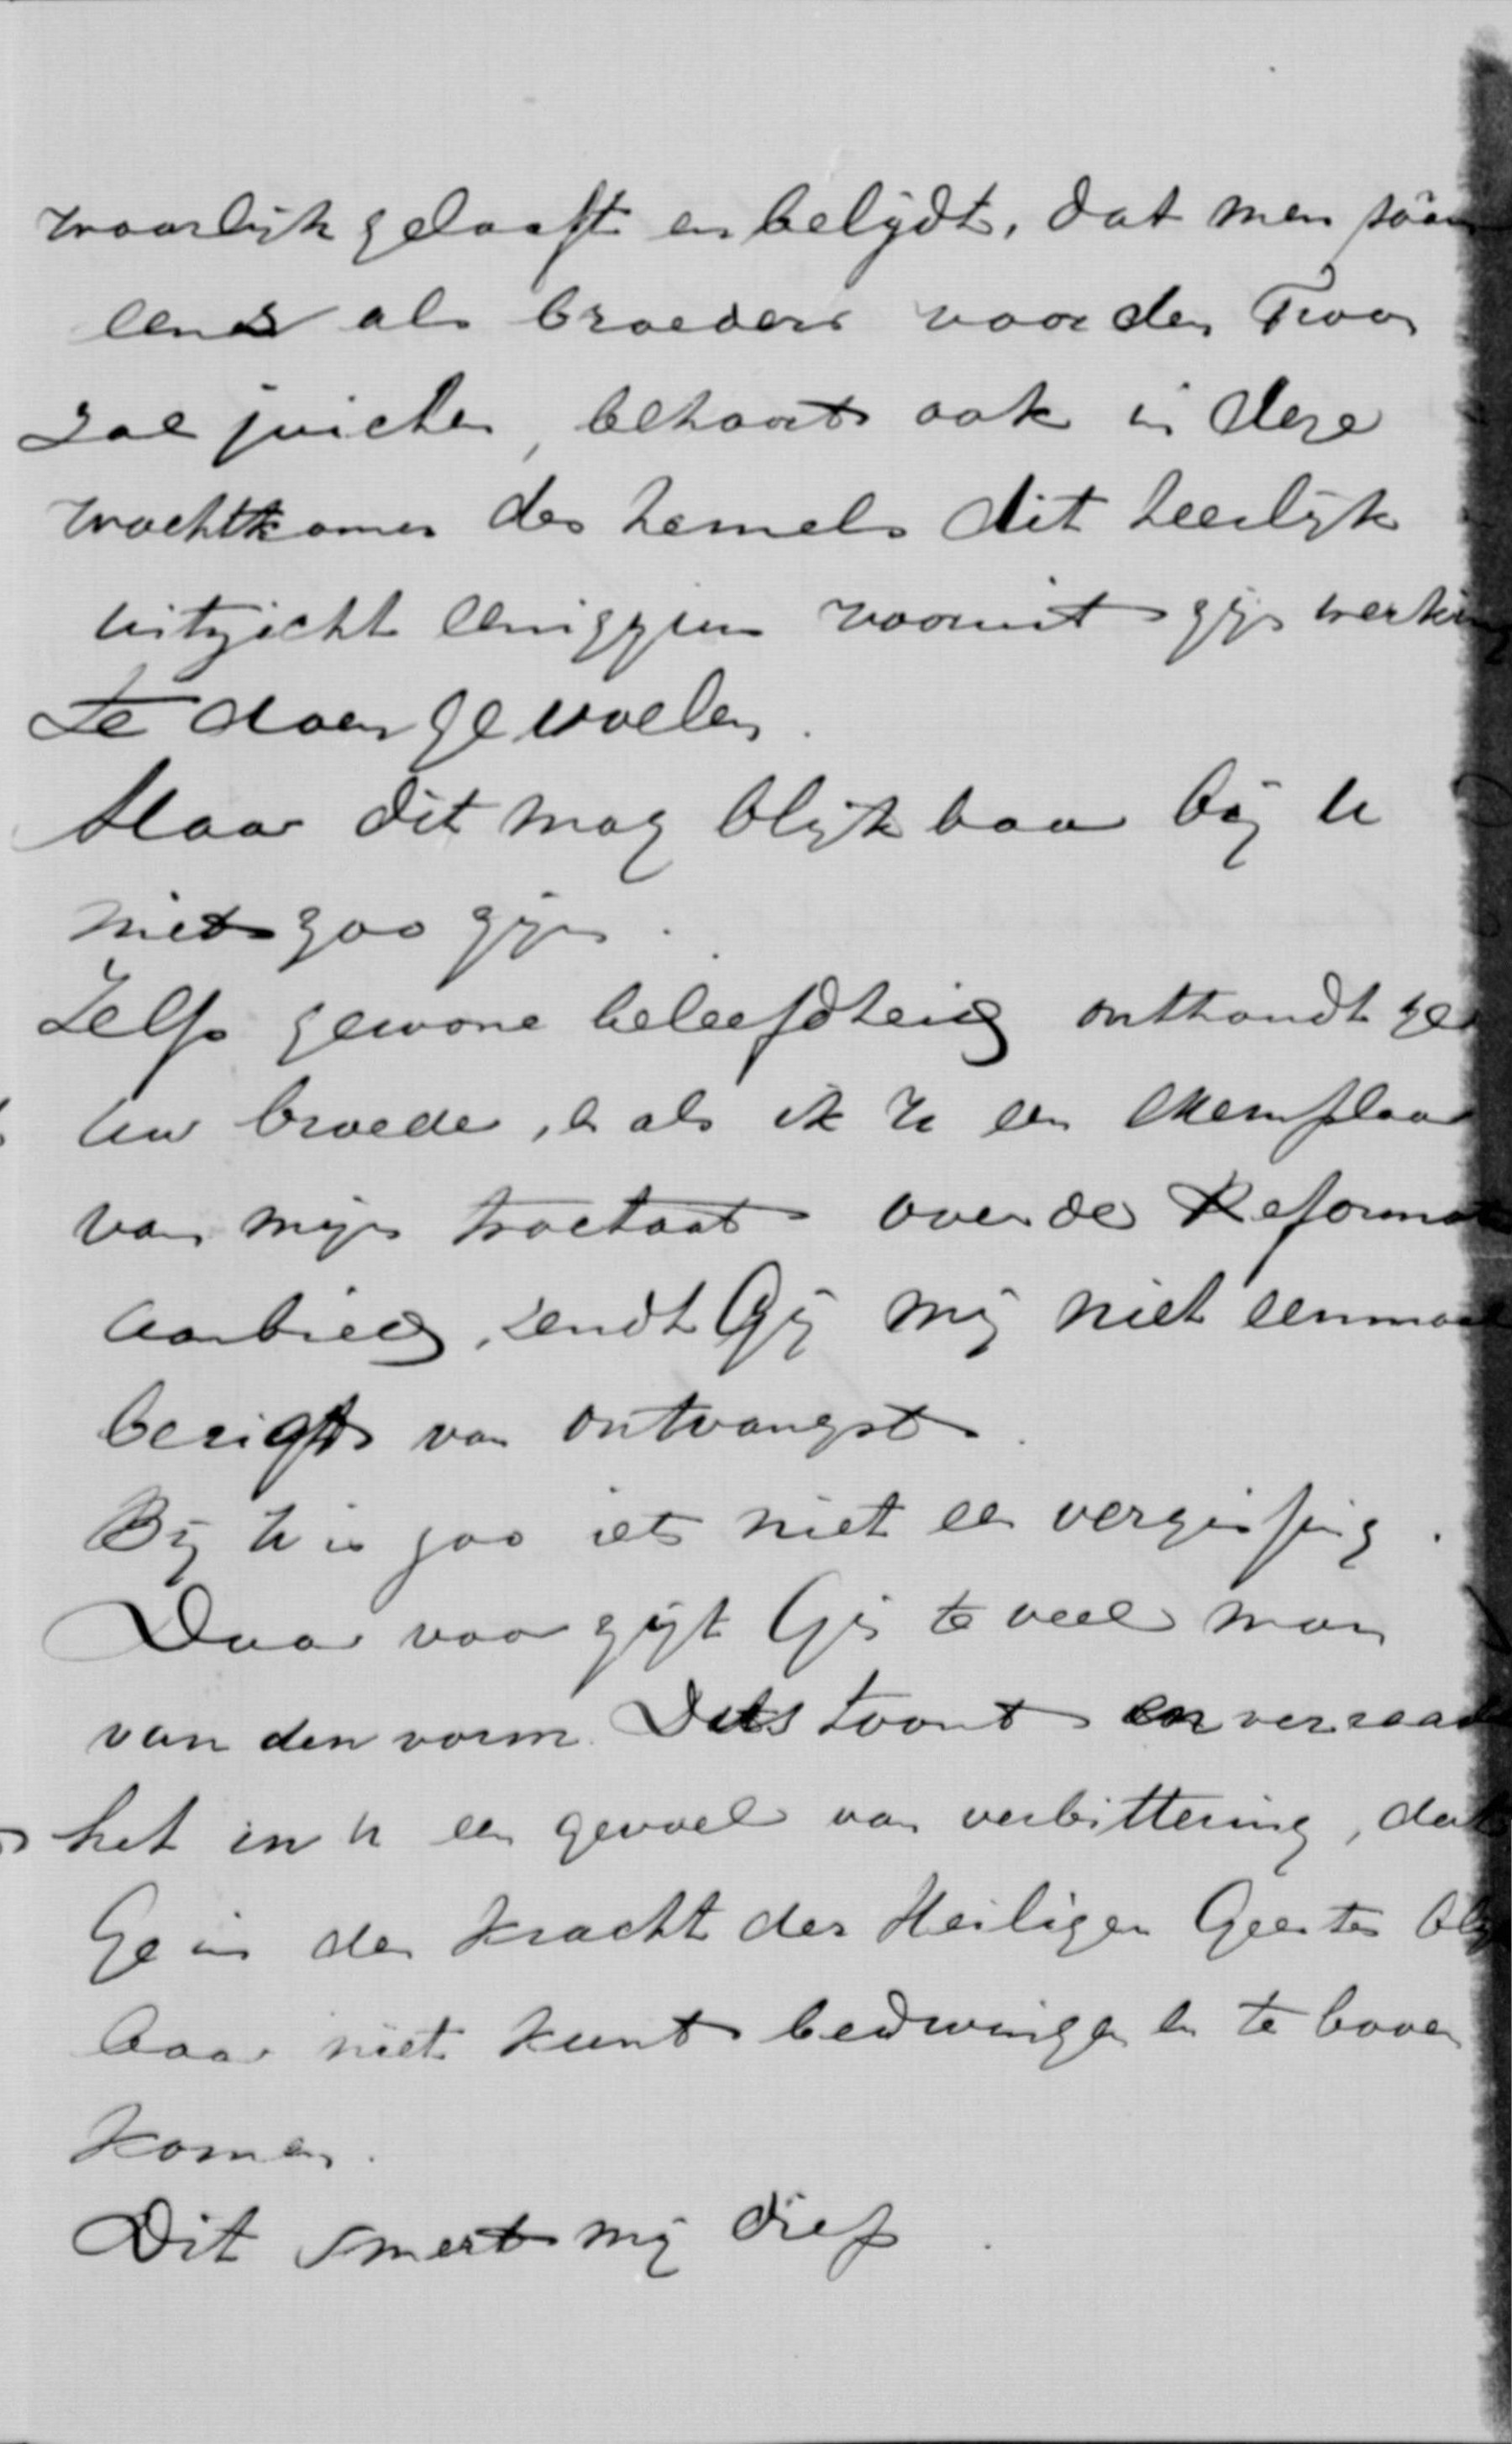 waarlijk gelooft en belijdt, dat men saam
eens als broeders voor den Troon
zal juichen, behoort ook in deze
wachtkamer des hemels dit heerlijk
uitzicht eenigzins vooruit zijn werking
te doen gevoelen.
Maar dit mag blijkbaar bij U
niet zoo zijn.
Zelfs gewone beleefdheid onthoudt ge
uw broeder, en als ik U een exemplaar
van mijn tractaat over de Reformat
aanbied, zendt Gij mij niet eenmaal
berigt van ontvangst.
Bij U is zoo iets niet een vergissing.
Daar voor zijt Gij te veel man
van den vorm. Dus toont en verraadt
het in U een gevoel van verbittering, dat
Ge in de kracht des Heiligen Geestes blijk
baar niet kunt bedwingen en te boven
komen.
Dit smert mij diep.